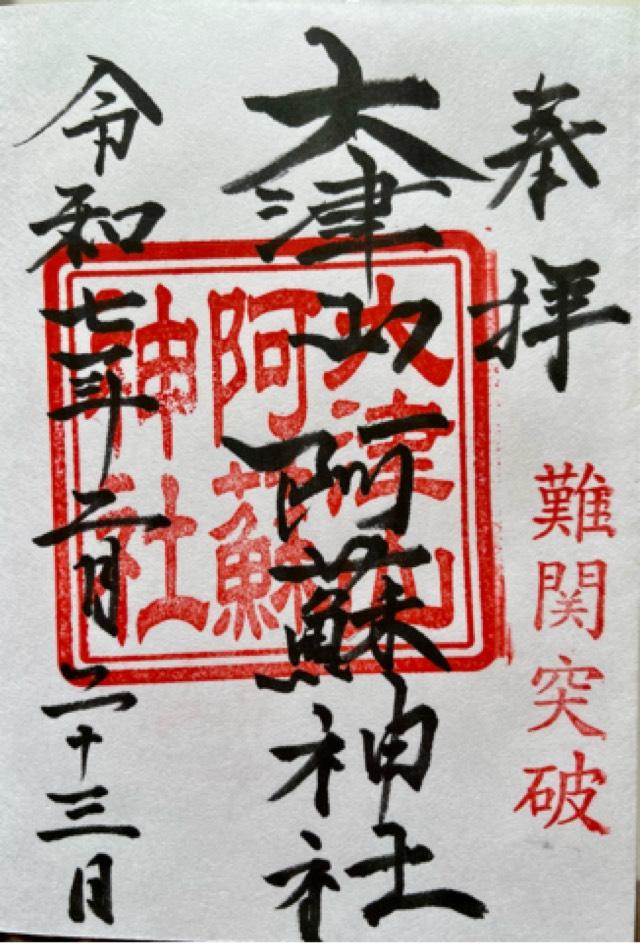 奉拝
難関突破
大津山阿蘇神社
大津山
阿蘇
神社
令和七年二月二十三日